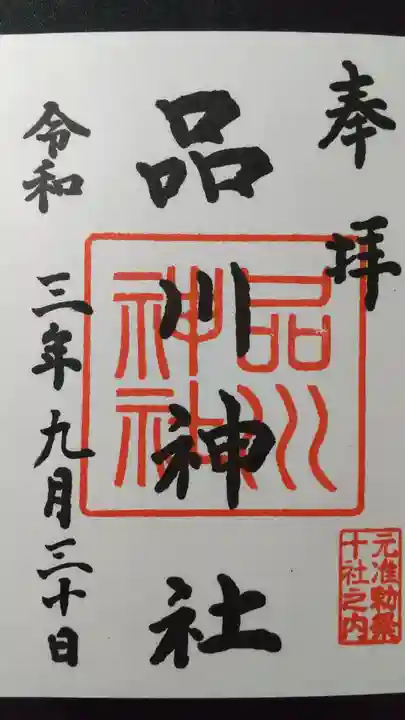 奉拝
品川神社
品川
神社
元准勅祭
十社之内
令和三年九月三十日